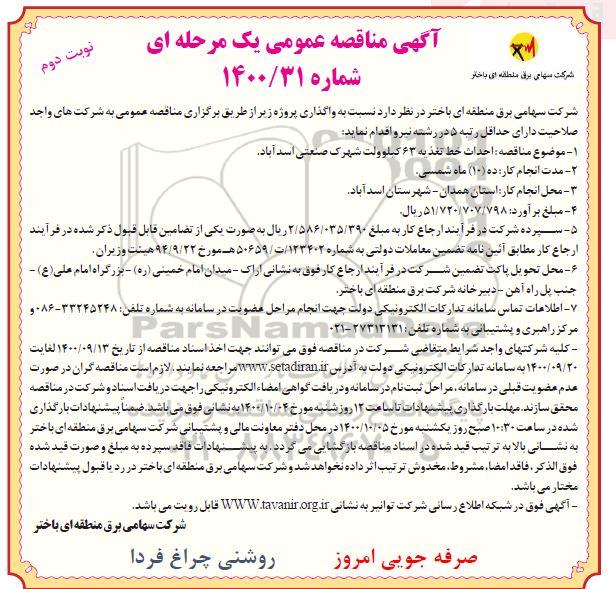 آگهی مناقصه عمومی یک مرحله ای
شماره ۱۴۰۰/۳۱
نوبت دوم
شرکت سهامی برق منطقه ای باختر
شرکت سهامی برق منطقه ای باختر در نظر دارد نسبت به واگذاری پروژه زیر از طریق برگزاری مناقصه عمومی به شرکت های واجد
صلاحیت دارای حداقل رتبه ۵ در رشته نیرو اقدام نماید:
۱- موضوع مناقصه: احداث خط تغذیه ۶۳ کیلوولت شهرک صنعتی اسدآباد.
۲- مدت انجام کار: ده (۱۰) ماه شمسی.
۳- محل انجام کار: استان همدان - شهرستان اسدآباد.
۴- مبلغ برآورد: ۵۱/۷۲۰/۷۰۷/۷۹۸ ریال.
۵- سپرده شرکت در فرآیند ارجاع کار به مبلغ ۲/۵۸۶/۰۳۵/۳۹۰ ریال به صورت یکی از تضامین قابل قبول ذکر شده در فرآیند
ارجاع کار مطابق آئین نامه تضمین معاملات دولتی به شماره ۱۲۳۴۰۲/ت/۵۰۶۵۹ هـ مورخ ۹۴/۹/۲۲ هیئت وزیران.
۶- محل تحویل پاکت تضمین شرکت در فرآیند ارجاع کار فوق به نشانی اراک - میدان امام خمینی (ره) - بزرگراه امام علی (ع) -
جنب پل راه آهن - دبیرخانه شرکت برق منطقه ای باختر.
۷- اطلاعات تماس سامانه تدارکات الکترونیکی دولت جهت انجام مراحل عضویت در سامانه به شماره تلفن: ۳۳۲۴۵۲۴۸-۰۸۶ و
مرکز راهبری و پشتیبانی به شماره تلفن: ۲۷۳۱۳۱۳۱-۰۲۱
- کلیه شرکتهای واجد شرایط متقاضی شرکت در مناقصه فوق می توانند جهت اخذ اسناد مناقصه از تاریخ ۱۴۰۰/۰۹/۱۳ لغایت
۱۴۰۰/۰۹/۲۰ به سامانه تدارکات الکترونیکی دولت به آدرس www.setadiran.ir مراجعه نمایند. لازم است مناقصه گران در صورت
عدم عضویت قبلی در سامانه، مراحل ثبت نام در سامانه و دریافت گواهی امضاء الکترونیکی را جهت دریافت اسناد و شرکت در مناقصه
محقق سازند. مهلت بارگذاری پیشنهادات تا ساعت ۱۲ روز شنبه مورخ ۱۴۰۰/۱۰/۰۴ به نشانی فوق می باشد. ضمناً پیشنهادات بارگذاری
شده در ساعت ۱۰:۳۰ صبح روز یکشنبه مورخ ۱۴۰۰/۱۰/۰۵ در محل دفتر معاونت مالی و پشتیبانی شرکت سهامی برق منطقه ای باختر
به نشانی بالا به ترتیب قید شده در اسناد مناقصه بازگشایی می گردد. به پیشنهادات فاقد سپرده به مبلغ و صورت قید شده
فوق الذکر، فاقد امضاء، مشروط، مخدوش ترتیب اثر داده نخواهد شد و شرکت سهامی برق منطقه ای باختر در رد یا قبول پیشنهادات
مختار می باشد.
- آگهی فوق در شبکه اطلاع رسانی شرکت توانیر به نشانی WWW.tavanir.org.ir قابل رویت می باشد.
شرکت سهامی برق منطقه ای باختر
صرفه جویی امروز روشنی چراغ فردا